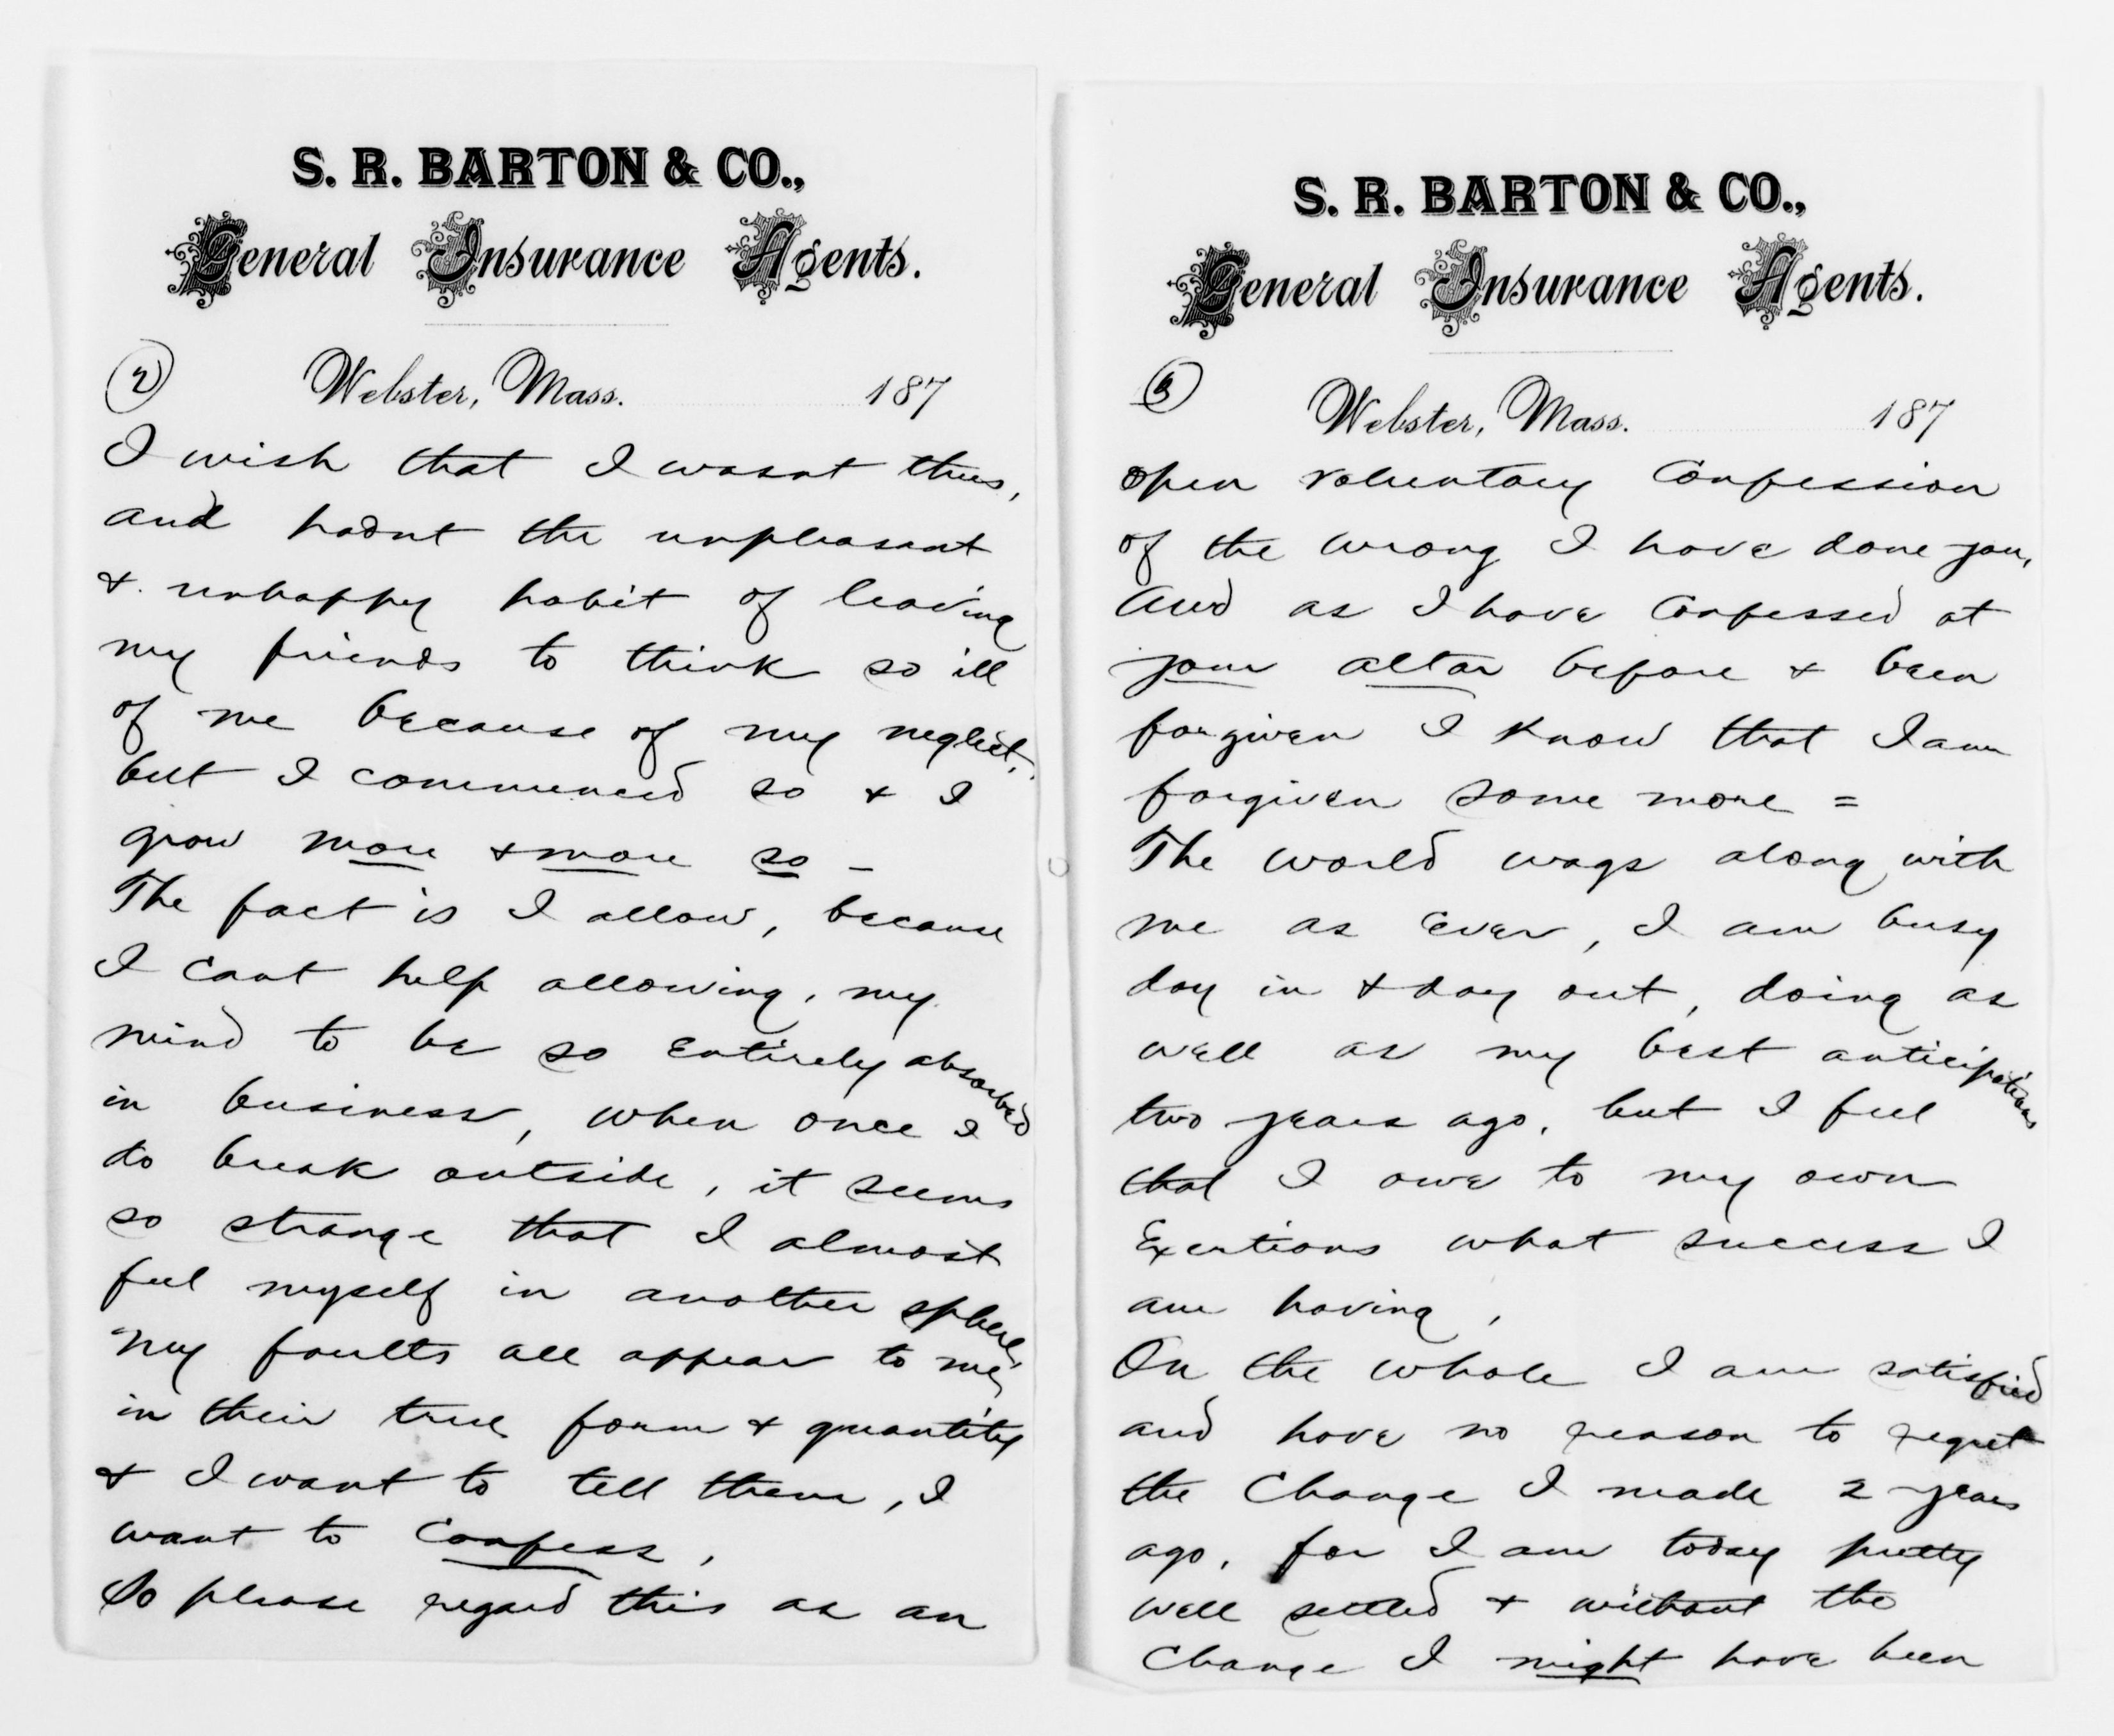 S. R. BARTON & CO.,
General Insurance Agents.
2
Webster, Mass. 187
I wish that I wasnt thus,
and hadnt the unpleasant
& unhappy habit of leaving
my friends to think so ill
of me because of my neglect,
but I commenced so & I
grow more & more so –
The fact is I allow, because
I cant help allowing, my
mind to be so entirely absorbed
in business, when once I
do break outside, it seems
so strange that I almost
feel myself in another sphere,
My faults all appear to me,
in their true form & quantity
& I want to tell them, I
want to Confess,
So please regard this as an
S. R. BARTON & CO.,
General Insurance Agents.
3
Webster, Mass. 187
open voluntary Confession
of the wrong I have done you,
And as I have Confessed at
your altar before & been
forgiven I know that I am
forgiven some more =
The world wags along with
me as ever, I am busy
day in & day out, doing as
well as my best anticipations
two years ago, but I feel
that I owe to my own
Exertions what success I
am having,
On the whole I am satisfied
and have no reason to regret
the Change I made 2 years
ago, for I am today pretty
well settled & without the
Change I might have been